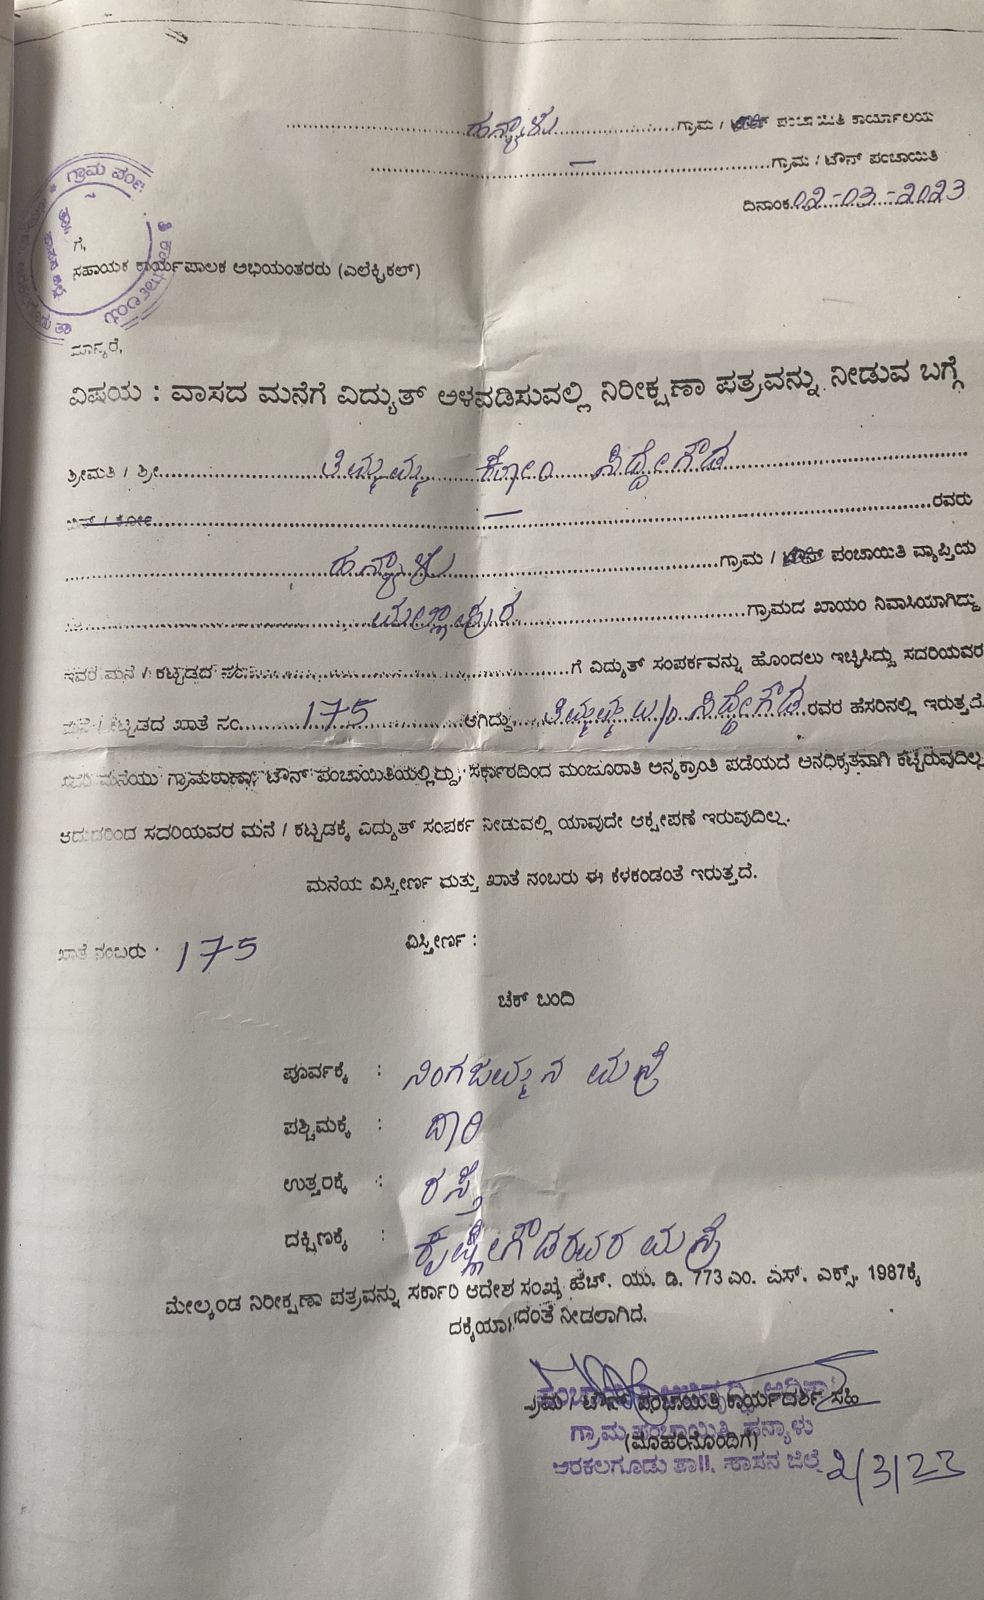 ಹನ್ಯಾಳು ಗ್ರಾಮ / ಪಂಚಾಯಿತಿ ಕಾರ್ಯಾಲಯ
ಗ್ರಾಮ / ಟೌನ್ ಪಂಚಾಯಿತಿ
ದಿನಾಂಕ 02-03-2023
ಗೆ,
ಸಹಾಯಕ ಕಾರ್ಯಪಾಲಕ ಅಭಿಯಂತರರು (ಎಲೆಕ್ಟ್ರಿಕಲ್)
ಮಾನ್ಯರೆ,
ವಿಷಯ : ವಾಸದ ಮನೆಗೆ ವಿದ್ಯುತ್ ಅಳವಡಿಸುವಲ್ಲಿ ನಿರೀಕ್ಷಣಾ ಪತ್ರವನ್ನು ನೀಡುವ ಬಗ್ಗೆ
ಶ್ರೀಮತಿ / ಶ್ರೀ ತಿಮ್ಮಮ್ಮ ಕೋಂ ಸಿದ್ದೇಗೌಡ
ಬಿನ್ / ಕೋಂ ರವರು
ಹನ್ಯಾಳು ಗ್ರಾಮ / ಟೌನ್ ಪಂಚಾಯಿತಿ ವ್ಯಾಪ್ತಿಯ
ಮಲ್ಲಾಪುರ ಗ್ರಾಮದ ಖಾಯಂ ನಿವಾಸಿಯಾಗಿದ್ದು
ಇವರ ಮನೆ / ಕಟ್ಟಡದ ನಂ ಗೆ ವಿದ್ಯುತ್ ಸಂಪರ್ಕವನ್ನು ಹೊಂದಲು ಇಚ್ಚಿಸಿದ್ದು ಸದರಿಯವರ
ಮನೆ / ಕಟ್ಟಡದ ಖಾತೆ ನಂ. 175 ಆಗಿದ್ದು ತಿಮ್ಮಮ್ಮ w/o ಸಿದ್ದೇಗೌಡ ರವರ ಹೆಸರಿನಲ್ಲಿ ಇರುತ್ತದೆ.
ಸದರಿ ಮನೆಯು ಗ್ರಾಮಠಾಣಾ / ಟೌನ್ ಪಂಚಾಯಿತಿಯಲ್ಲಿದ್ದು, ಸರ್ಕಾರದಿಂದ ಮಂಜೂರಾತಿ ಅನ್ಯಕ್ರಾಂತಿ ಪಡೆಯದೆ ಅನಧಿಕೃತವಾಗಿ ಕಟ್ಟಿರುವುದಿಲ್ಲ
ಆದುದರಿಂದ ಸದರಿಯವರ ಮನೆ / ಕಟ್ಟಡಕ್ಕೆ ವಿದ್ಯುತ್ ಸಂಪರ್ಕ ನೀಡುವಲ್ಲಿ ಯಾವುದೇ ಆಕ್ಷೇಪಣೆ ಇರುವುದಿಲ್ಲ.
ಮನೆಯ ವಿಸ್ತೀರ್ಣ ಮತ್ತು ಖಾತೆ ನಂಬರು ಈ ಕೆಳಕಂಡಂತೆ ಇರುತ್ತದೆ.
ಖಾತೆ ನಂಬರು : 175 ವಿಸ್ತೀರ್ಣ :
ಚೆಕ್ ಬಂದಿ
ಪೂರ್ವಕ್ಕೆ : ನಿಂಗಜಮ್ಮನ ಮನೆ
ಪಶ್ಚಿಮಕ್ಕೆ : ದಾರಿ
ಉತ್ತರಕ್ಕೆ : ರಸ್ತೆ
ದಕ್ಷಿಣಕ್ಕೆ : ಕೃಷ್ಣೇಗೌಡರವರ ಮನೆ
ಮೇಲ್ಕಂಡ ನಿರೀಕ್ಷಣಾ ಪತ್ರವನ್ನು ಸರ್ಕಾರಿ ಆದೇಶ ಸಂಖ್ಯೆ ಹೆಚ್. ಯು. ಡಿ. 773 ಎಂ. ಎಸ್. ಎಕ್ಸ್. 1987ಕ್ಕೆ
ನೀಡಲಾಗಿದೆ.
ಟೌನ್ ಪಂಚಾಯಿತಿ ಕಾರ್ಯದರ್ಶಿ ಸಹಿ
ಗ್ರಾಮ ಪಂಚಾಯಿತಿ, ಹನ್ಯಾಳು
(ಮೊಹರಿನೊಂದಿಗೆ)
ಅರಕಲಗೂಡು ತಾ||, ಹಾಸನ ಜಿಲ್ಲೆ
2/3/23